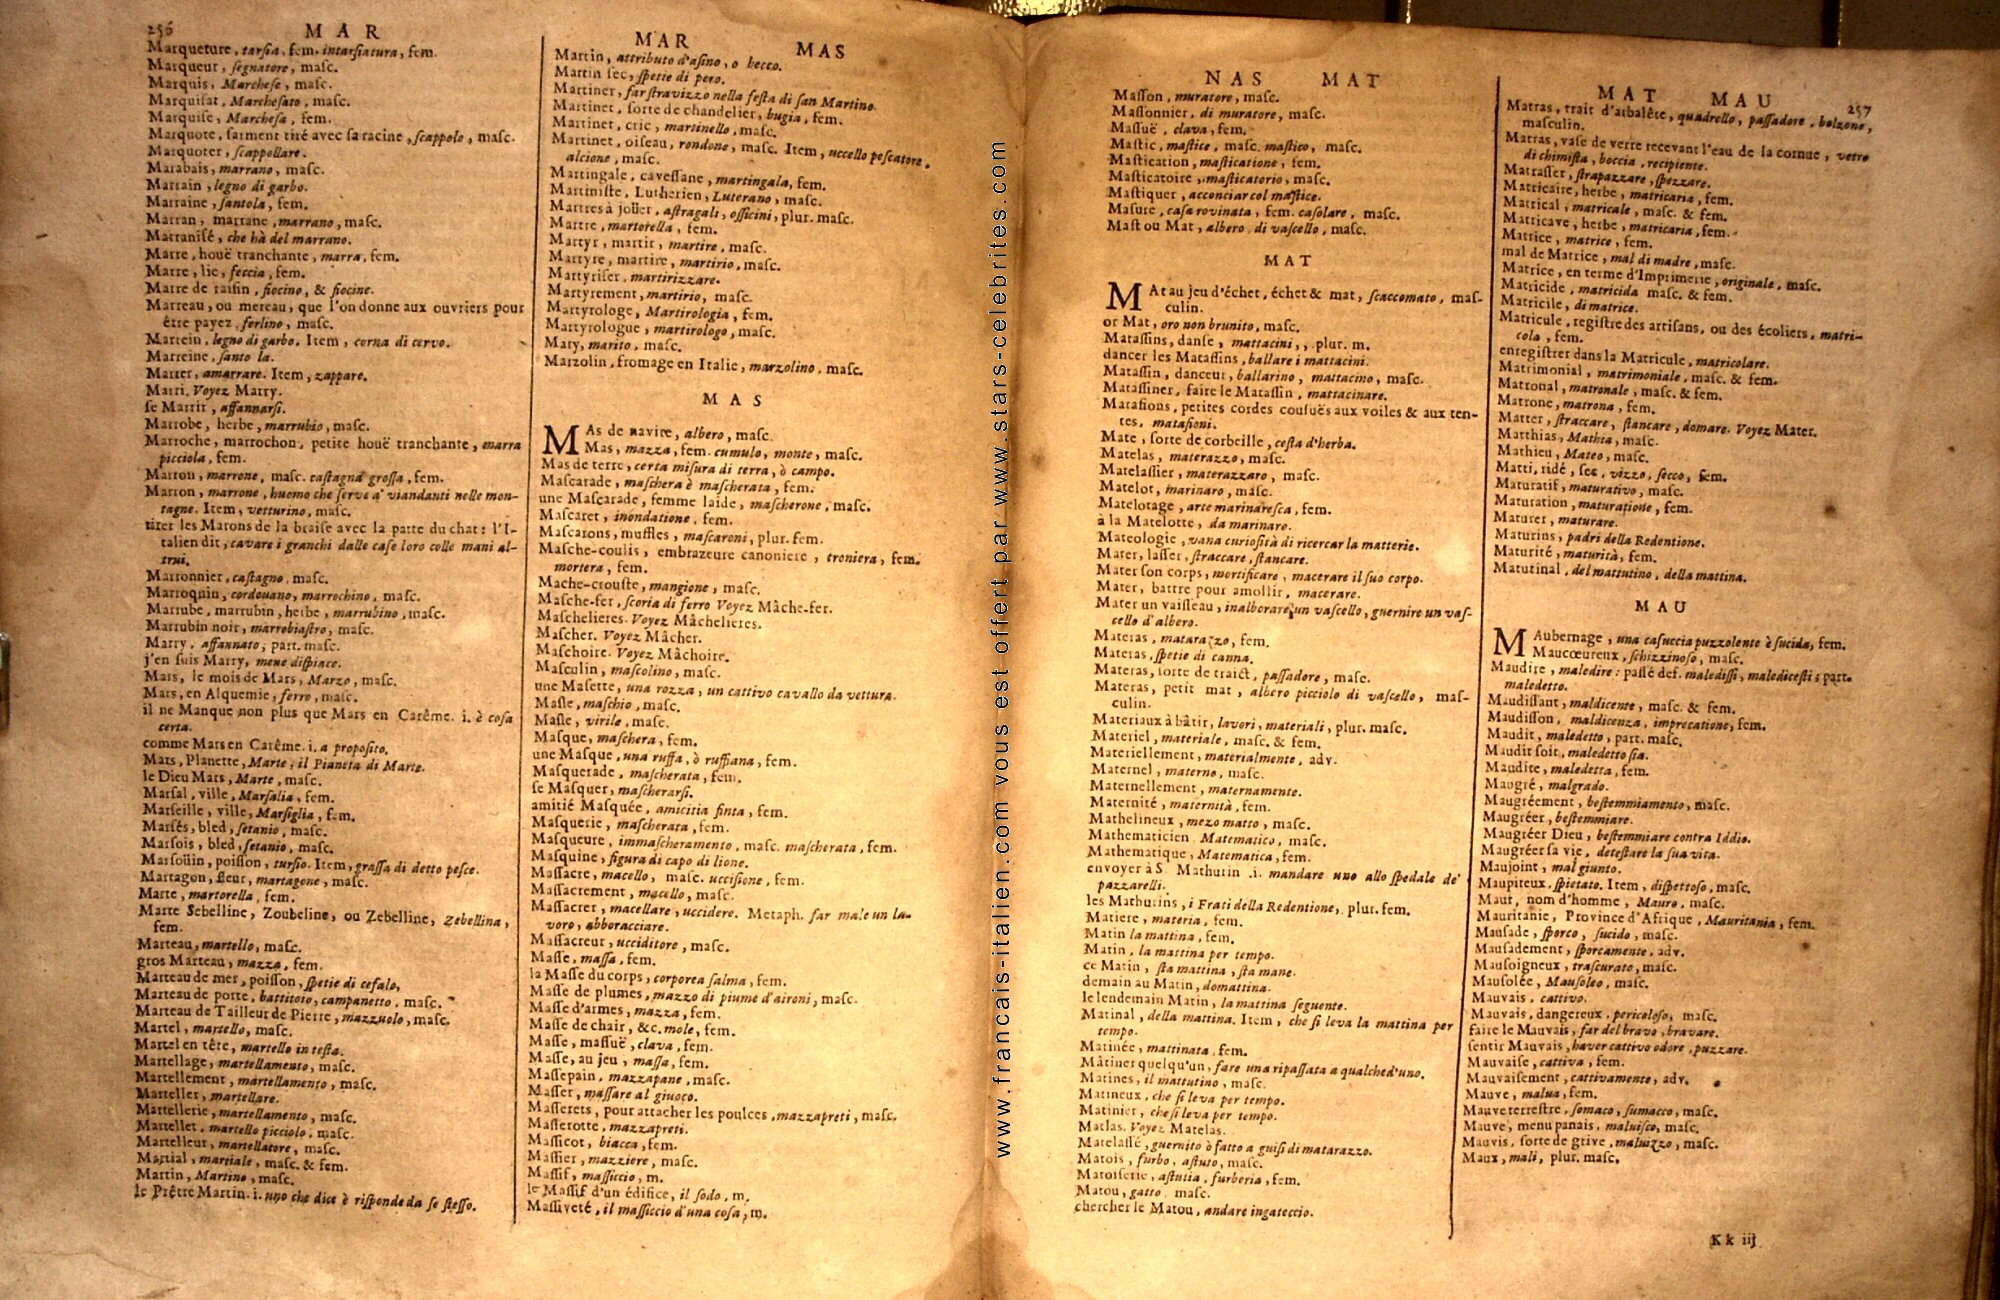 256 MAR
Marqueture, tarsia, fem. intarsiatura, fem.
Marqueur, segnatore, masc.
Marquis, Marchese, masc.
Marquisat, Marchesato, masc.
Marquise, Marchesa, fem.
Marquote, sarment tiré avec sa racine, scappolo, masc.
Marquoter, scappollare.
Marabais, marrano, masc.
Marrain, legno di garbo.
Marraine, santola, fem.
Marran, marrane, marrano, masc.
Marranisé, che hà del marrano.
Marre, houë tranchante, marra, fem.
Marre, lie, feccia, fem.
Marre de raisin, fiocino, & fiocine.
Marreau, ou mereau, que l'on donne aux ouvriers pour
être payez, ferlino, masc.
Marrein, legno di garbo. Item, corna di cervo.
Marreine, santo la.
Marrer, amarrare. Item, zappare.
Marri. Voyez Marry.
se Marrir, affannarsi.
Marrobe, herbe, marrubio, masc.
Marroche, marrochon, petite houë tranchante, marra
picciola, fem.
Marron, marrone, masc. castagna grossa, fem.
Marron, marrone, huomo che serve a' viandanti nelle mon-
tagne. Item, vetturino, masc.
tirer les Marons de la braise avec la patte du chat: l'I-
talien dit, cavare i granchi dalle case loro colle mani al-
trui.
Marronnier, castagno, masc.
Marroquin, cordouano, marrochino, masc.
Marrube, marrubin, herbe, marrubino, masc.
Marrubin noir, marrobiastro, masc.
Marry, affannato, part. masc.
j'en suis Marry, mene dispiace.
Mars, le mois de Mars, Marzo, masc.
Mars, en Alquemie, ferro, masc.
il ne Manque non plus que Mars en Carême. i. è cosa
certa.
comme Mars en Carême. i. a proposito.
Mars, Planette, Marte, il Pianeta di Marte.
le Dieu Mars, Marte, masc.
Marsal, ville, Marsalia, fem.
Marseille, ville, Marsiglia, fem.
Marsés, bled, setanio, masc.
Marsois, bled, setanio, masc.
Marsoüin, poisson, tursio. Item, grassa di detto pesce.
Martagon, fleur, martagone, masc.
Marte, martorella, fem.
Marte Sebelline, Zoubeline, ou Zebelline, zebellina,
fem.
Marteau, martello, masc.
gros Marteau, mazza, fem.
Marteau de mer, poisson, spetie di cefalo,
Marteau de porte, battitoio, campanetto, masc.
Marteau de Tailleur de Pierre, mazzuolo, masc.
Martel, martello, masc.
Martel en tête, martello in testa.
Martellage, martellamento, masc.
Martellement, martellamento, masc.
Marteller, martellare.
Martellerie, martellamento, masc.
Martellet, martello picciolo, masc.
Martelleur, martellatore, masc.
Martial, martiale, masc. & fem.
Martin, Martino, masc.
le Prêtre Martin. i. uno che dice è risponde da se stesso.
MAR MAS
Martin, attributo d'asino, o becco.
Martin sec, spetie di pero.
Martiner, far stravizzo nella festa di san Martino.
Martinet, sorte de chandelier, bugia, fem.
Martinet, cric, martinello, masc.
Martinet, oiseau, rondone, masc. Item, uccello pescatore,
alcione, masc.
Martingale, cavessane, martingala, fem.
Martiniste, Lutherien, Luterano, masc.
Martres à joüer, astragali, officini, plur. masc.
Martre, martorella, fem.
Martyr, martir, martire, masc.
Martyre, martire, martirio, masc.
Martyriser, martirizzare.
Martyrement, martirio, masc.
Martyrologe, Martirologia, fem.
Martyrologue, martirologo, masc.
Mary, marito, masc.
Marzolin, fromage en Italie, marzolino, masc.
MAS
MAs de navire, albero, masc.
Mas, mazza, fem. cumulo, monte, masc.
Mas de terre, certa misura di terra, ò campo.
Mascarade, maschera è mascherata, fem.
une Mascarade, femme laide, mascherone, masc.
Mascaret, inondatione, fem.
Mascarons, muffles, mascaroni, plur. fem.
Masche-coulis, embrazeure canoniere, troniera, fem.
mortera, fem.
Mache-crouste, mangione, masc.
Masche-fer, scoria di ferro Voyez Mâche-fer.
Maschelieres. Voyez Mâchelieres.
Mascher. Voyez Mâcher.
Maschoire. Voyez Mâchoire.
Masculin, mascolino, masc.
une Masette, una rozza, un cattivo cavallo da vettura.
Masle, maschio, masc.
Masle, virile, masc.
Masque, maschera, fem.
une Masque, una ruffa, ò ruffiana, fem.
Masquerade, mascherata, fem.
se Masquer, mascherarsi.
amitié Masquée, amicitia finta, fem.
Masquerie, mascherata, fem.
Masqueure, immascheramento, masc. mascherata, fem.
Masquine, figura di capo di lione.
Massacre, macello, masc. uccisione, fem.
Massacrement, macello, masc.
Massacrer, macellare, uccidere. Metaph. far male un la-
voro, abboracciare.
Massacreur, ucciditore, masc.
Masse, massa, fem.
la Masse du corps, corporea salma, fem.
Masse de plumes, mazzo di piume d'aironi, masc.
Masse d'armes, mazza, fem.
Masse de chair, &c. mole, fem.
Masse, massuë, clava, fem.
Masse, au jeu, massa, fem.
Massepain, mazzapane, masc.
Masser, massare al giuoco.
Masserets, pour attacher les poulces, mazzapreti, masc.
Masserotte, mazzapreti.
Massicot, biacca, fem.
Massier, mazziere, masc.
Massif, massiccio, m.
le Massif d'un édifice, il sodo, m.
Massiveté, il massiccio d'una cosa, m.
www.francais-italien.com vous est offert par www.stars-celebrites.com
NAS MAT
Masson, muratore, masc.
Massonnier, di muratore, masc.
Massuë, clava, fem.
Mastic, mastice, masc. mastico, masc.
Mastication, masticatione, fem.
Masticatoire, masticatorio, masc.
Mastiquer, acconciar col mastice.
Masure, casa rovinata, fem. casolare, masc.
Mast ou Mat, albero di vascello, masc.
MAT
MAt au jeu d'échet, échet & mat, scaccomato, mas-
culin.
or Mat, oro non brunito, masc.
Matassins, danse, mattacini, , plur. m.
dancer les Matassins, ballare i mattacini.
Matassin, danceur, ballarino, mattacino, masc.
Matassiner, faire le Matassin, mattacinare.
Matafions, petites cordes cousuës aux voiles & aux ten-
tes, matafioni.
Mate, sorte de corbeille, cesta d'herba.
Matelas, materazzo, masc.
Matelassier, materazzaro, masc.
Matelot, marinaro, masc.
Matelotage, arte marinaresca, fem.
à la Matelotte, da marinaro.
Mateologie, vana curiosità di ricercar la matterie.
Mater, lasser, straccare, stancare.
Mater son corps, mortificare, macerare il suo corpo.
Mater, battre pour amollir, macerare.
Mater un vaisseau, inalborare un vascello, guernire un vas-
cello d'albero.
Materas, matarazzo, fem.
Materas, spetie di canna.
Materas, sorte de traict, passadore, masc.
Materas, petit mat, albero picciolo di vascello, mas-
culin.
Materiaux à bâtir, lavori, materiali, plur. masc.
Materiel, materiale, masc. & fem.
Materiellement, materialmente, adv.
Maternel, materno, masc.
Maternellement, maternamente.
Maternité, maternità, fem.
Mathelineux, mezo matto, masc.
Mathematicien, Matematico, masc.
Mathematique, Matematica, fem.
envoyer à S. Mathurin .i. mandare uno allo spedale de'
pazzarelli.
les Mathurins, i Frati della Redentione, plur. fem.
Matiere, materia, fem.
Matin la mattina, fem.
Matin, la mattina per tempo.
ce Matin, sta mattina, sta mane.
demain au Matin, domattina.
le lendemain Matin, la mattina seguente.
Matinal, della mattina. Item, che si leva la mattina per
tempo.
Matinée, mattinata, fem.
Mâtiner quelqu'un, fare una ripassata a qualched'uno.
Matines, il mattutino, masc.
Matineux, che si leva per tempo.
Matinier, che si leva per tempo.
Matlas. Voyez Matelas.
Matelassé, guernito ò fatto a guisi di matarazzo.
Matois, furbo, astuto, masc.
Matoiserie, astutia, furberia, fem.
Matou, gatto, masc.
chercher le Matou, andare ingateccio.
MAT MAU 257
Matras, trait d'arbalête, quadrello, passadore, bolzone,
masculin.
Matras, vase de verre recevant l'eau de la cornue, vetro
di chimista, boccia, recipiente.
Matrasser, strapazzare, spezzare.
Matricaire, herbe, matricaria, fem.
Matrical, matricale, masc. & fem.
Matricave, herbe, matricaria, fem.
Matrice, matrice, fem.
mal de Matrice, mal di madre, masc.
Matrice, en terme d'Imprimerie, originale, masc.
Matricide, matricida masc. & fem.
Matricile, di matrice.
Matricule, registre des artisans, ou des écoliers, matri-
cola, fem.
enregistrer dans la Matricule, matricolare.
Matrimonial, matrimoniale, masc. & fem.
Matronal, matronale, masc. & fem.
Matrone, matrona, fem.
Matter, straccare, stancare, domare. Voyez Mater.
Matthias, Mathia, masc.
Mathieu, Mateo, masc.
Matti, ridé, sec, vizzo, secco, fem.
Maturatif, maturativo, masc.
Maturation, maturatione, fem.
Maturer, maturare.
Maturins, padri della Redentione.
Maturité, maturità, fem.
Matutinal, del mattutino, della mattina.
MAU
MAubernage, una casuccia puzzolente è sucida, fem.
Maucœureux, schizzinoso, masc.
Maudire, maledire: passé def. maledissi, maledicesti: part.
maledetto.
Maudissant, maldicente, masc. & fem.
Maudisson, maldicenza, imprecatione, fem.
Maudit, maledetto, part. masc.
Maudit soit, maledetto sia.
Maudite, maledetta, fem.
Maugré, malgrado.
Maugréement, bestemmiamento, masc.
Maugréer, bestemmiare.
Maugréer Dieu, bestemmiare contra Iddio.
Maugréer sa vie, detestare la sua vita.
Maujoint, mal giunto.
Maupiteux, spietato. Item, dispettoso, masc.
Maur, nom d'homme, Mauro, masc.
Mauritanie, Province d'Afrique, Mauritania, fem.
Mausade, sporco, sucido, masc.
Mausadement, sporcamente, adv.
Mausoigneux, trascurato, masc.
Mausolée, Mausoleo, masc.
Mauvais, cattivo.
Mauvais, dangereux, pericoloso, masc.
faire le Mauvais, far del bravo, bravare.
sentir Mauvais, haver cattivo odore, puzzare.
Mauvaise, cattiva, fem.
Mauvaisement, cattivamente, adv.
Mauve, malua, fem.
Mauve terrestre, somaco, sumacco, masc.
Mauve, menu panais, maluisco, masc.
Mauvis, sorte de grive, maluizzo, masc.
Maux, mali, plur. masc.
Kk iij